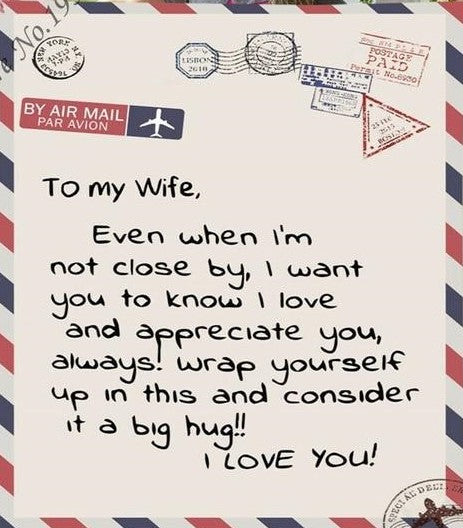 No.19
NEW YORK N.Y.
LISBON
2018
POSTAGE
PAID
Permit No.8930
BY AIR MAIL
PAR AVION
To my Wife,
Even when I'm
not close by, I want
you to know I love
and appreciate you,
always! wrap yourself
up in this and consider
it a big hug!!
I LOVE YOU!
SPECIAL DELI